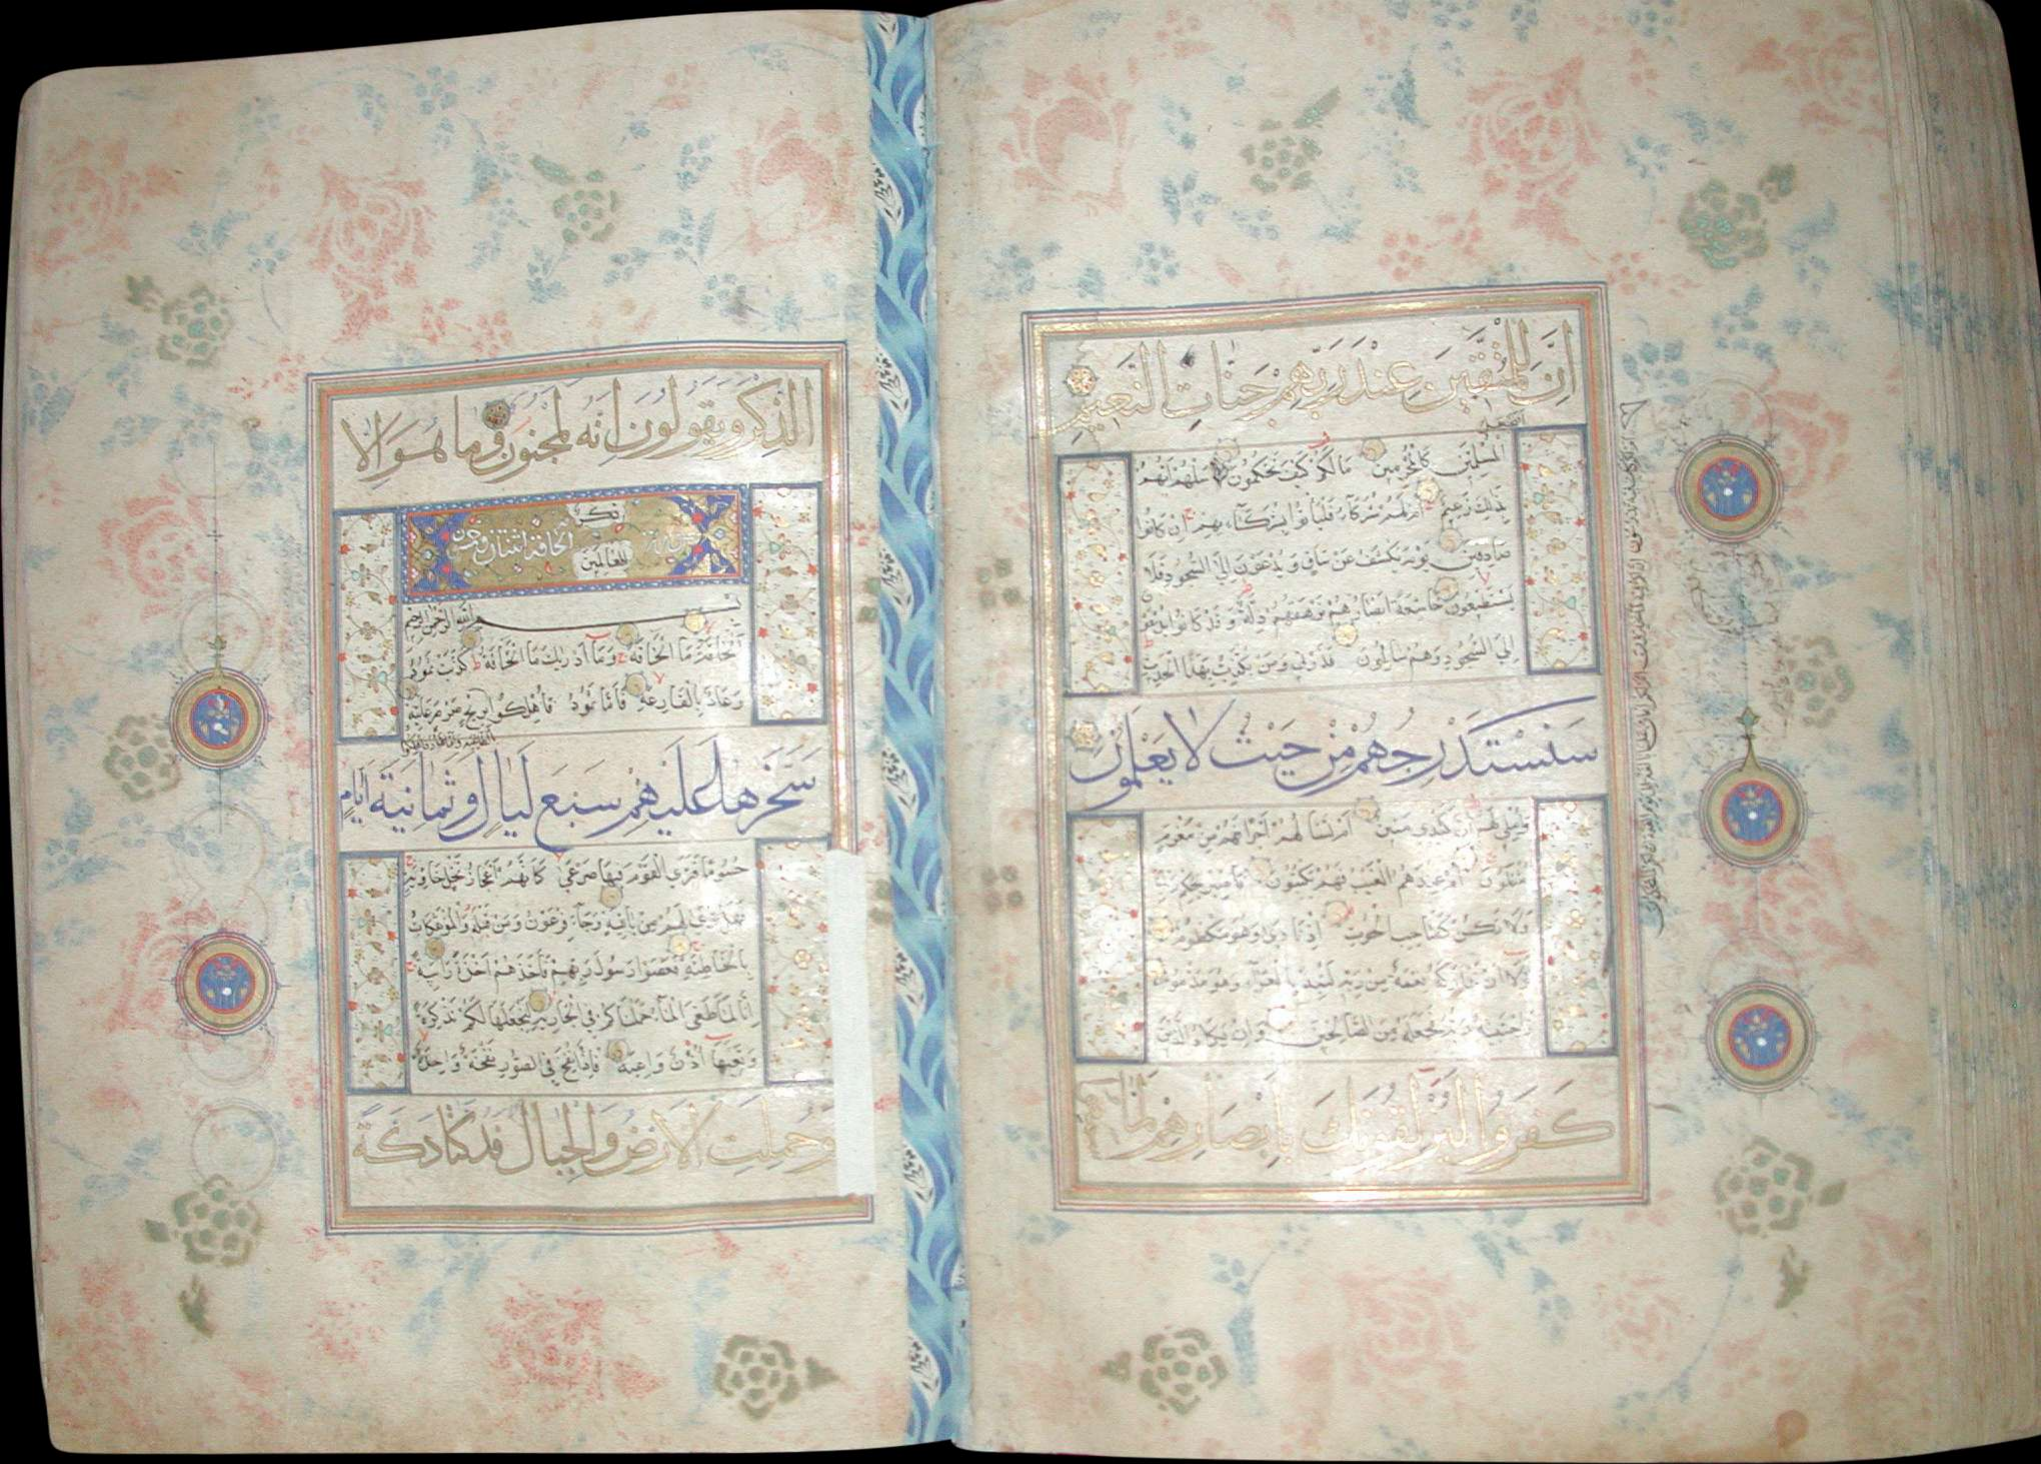 اِنَّ لِلْمُتَّقِينَ عِنْدَ رَبِّهِمْ جَنَّاتِ النَّعِيمِ
اَفَنَجْعَلُ
الْمُسْلِمِينَ كَالْمُجْرِمِينَ مَا لَكُمْ كَيْفَ تَحْكُمُونَ سَلْهُمْ اَيُّهُمْ
بِذٰلِكَ زَعِيمٌ اَمْ لَهُمْ شُرَكَآءُ فَلْيَأْتُوا بِشُرَكَآئِهِمْ اِنْ كَانُوا
صَادِقِينَ يَوْمَ يُكْشَفُ عَنْ سَاقٍ وَيُدْعَوْنَ اِلَى السُّجُودِ فَلَا
يَسْتَطِيعُونَ خَاشِعَةً اَبْصَارُهُمْ تَرْهَقُهُمْ ذِلَّةٌ وَقَدْ كَانُوا يُدْعَوْنَ
اِلَى السُّجُودِ وَهُمْ سَالِمُونَ فَذَرْنِي وَمَنْ يُكَذِّبُ بِهٰذَا الْحَدِيثِ
سَنَسْتَدْرِجُهُمْ مِنْ حَيْثُ لَا يَعْلَمُونَ
وَاُمْلِي لَهُمْ اِنَّ كَيْدِي مَتِينٌ اَمْ تَسْأَلُهُمْ اَجْرًا فَهُمْ مِنْ مَغْرَمٍ
مُثْقَلُونَ اَمْ عِنْدَهُمُ الْغَيْبُ فَهُمْ يَكْتُبُونَ فَاصْبِرْ لِحُكْمِ رَبِّكَ
وَلَا تَكُنْ كَصَاحِبِ الْحُوتِ اِذْ نَادٰى وَهُوَ مَكْظُومٌ
لَوْلَا اَنْ تَدَارَكَهُ نِعْمَةٌ مِنْ رَبِّهِ لَنُبِذَ بِالْعَرَآءِ وَهُوَ مَذْمُومٌ
فَاجْتَبٰهُ رَبُّهُ فَجَعَلَهُ مِنَ الصَّالِحِينَ وَاِنْ يَكَادُ الَّذِينَ
كَفَرُوا لَيُزْلِقُونَكَ بِاَبْصَارِهِمْ لَمَّا
الذِّكْرَ وَيَقُولُونَ اِنَّهُ لَمَجْنُونٌ وَمَا هُوَ اِلَّا
ذِكْرٌ
لِلْعَالَمِينَ
الحاقة اثنتان وخمسون
بِسْمِ اللّٰهِ الرَّحْمٰنِ الرَّحِيمِ
اَلْحَاقَّةُ مَا الْحَاقَّةُ وَمَا اَدْرٰيكَ مَا الْحَاقَّةُ كَذَّبَتْ ثَمُودُ
وَعَادٌ بِالْقَارِعَةِ فَاَمَّا ثَمُودُ فَاُهْلِكُوا بِرِيحٍ صَرْصَرٍ عَاتِيَةٍ
بِالطَّاغِيَةِ وَاَمَّا عَادٌ فَاُهْلِكُوا
سَخَّرَهَا عَلَيْهِمْ سَبْعَ لَيَالٍ وَثَمَانِيَةَ اَيَّامٍ
حُسُومًا فَتَرَى الْقَوْمَ فِيهَا صَرْعٰى كَاَنَّهُمْ اَعْجَازُ نَخْلٍ خَاوِيَةٍ
فَهَلْ تَرٰى لَهُمْ مِنْ بَاقِيَةٍ وَجَآءَ فِرْعَوْنُ وَمَنْ قَبْلَهُ وَالْمُؤْتَفِكَاتُ
بِالْخَاطِئَةِ فَعَصَوْا رَسُولَ رَبِّهِمْ فَاَخَذَهُمْ اَخْذَةً رَابِيَةً
اِنَّا لَمَّا طَغَى الْمَآءُ حَمَلْنَاكُمْ فِي الْجَارِيَةِ لِنَجْعَلَهَا لَكُمْ تَذْكِرَةً
وَتَعِيَهَا اُذُنٌ وَاعِيَةٌ فَاِذَا نُفِخَ فِي الصُّورِ نَفْخَةٌ وَاحِدَةٌ
وَحُمِلَتِ الْاَرْضُ وَالْجِبَالُ فَدُكَّتَا دَكَّةً